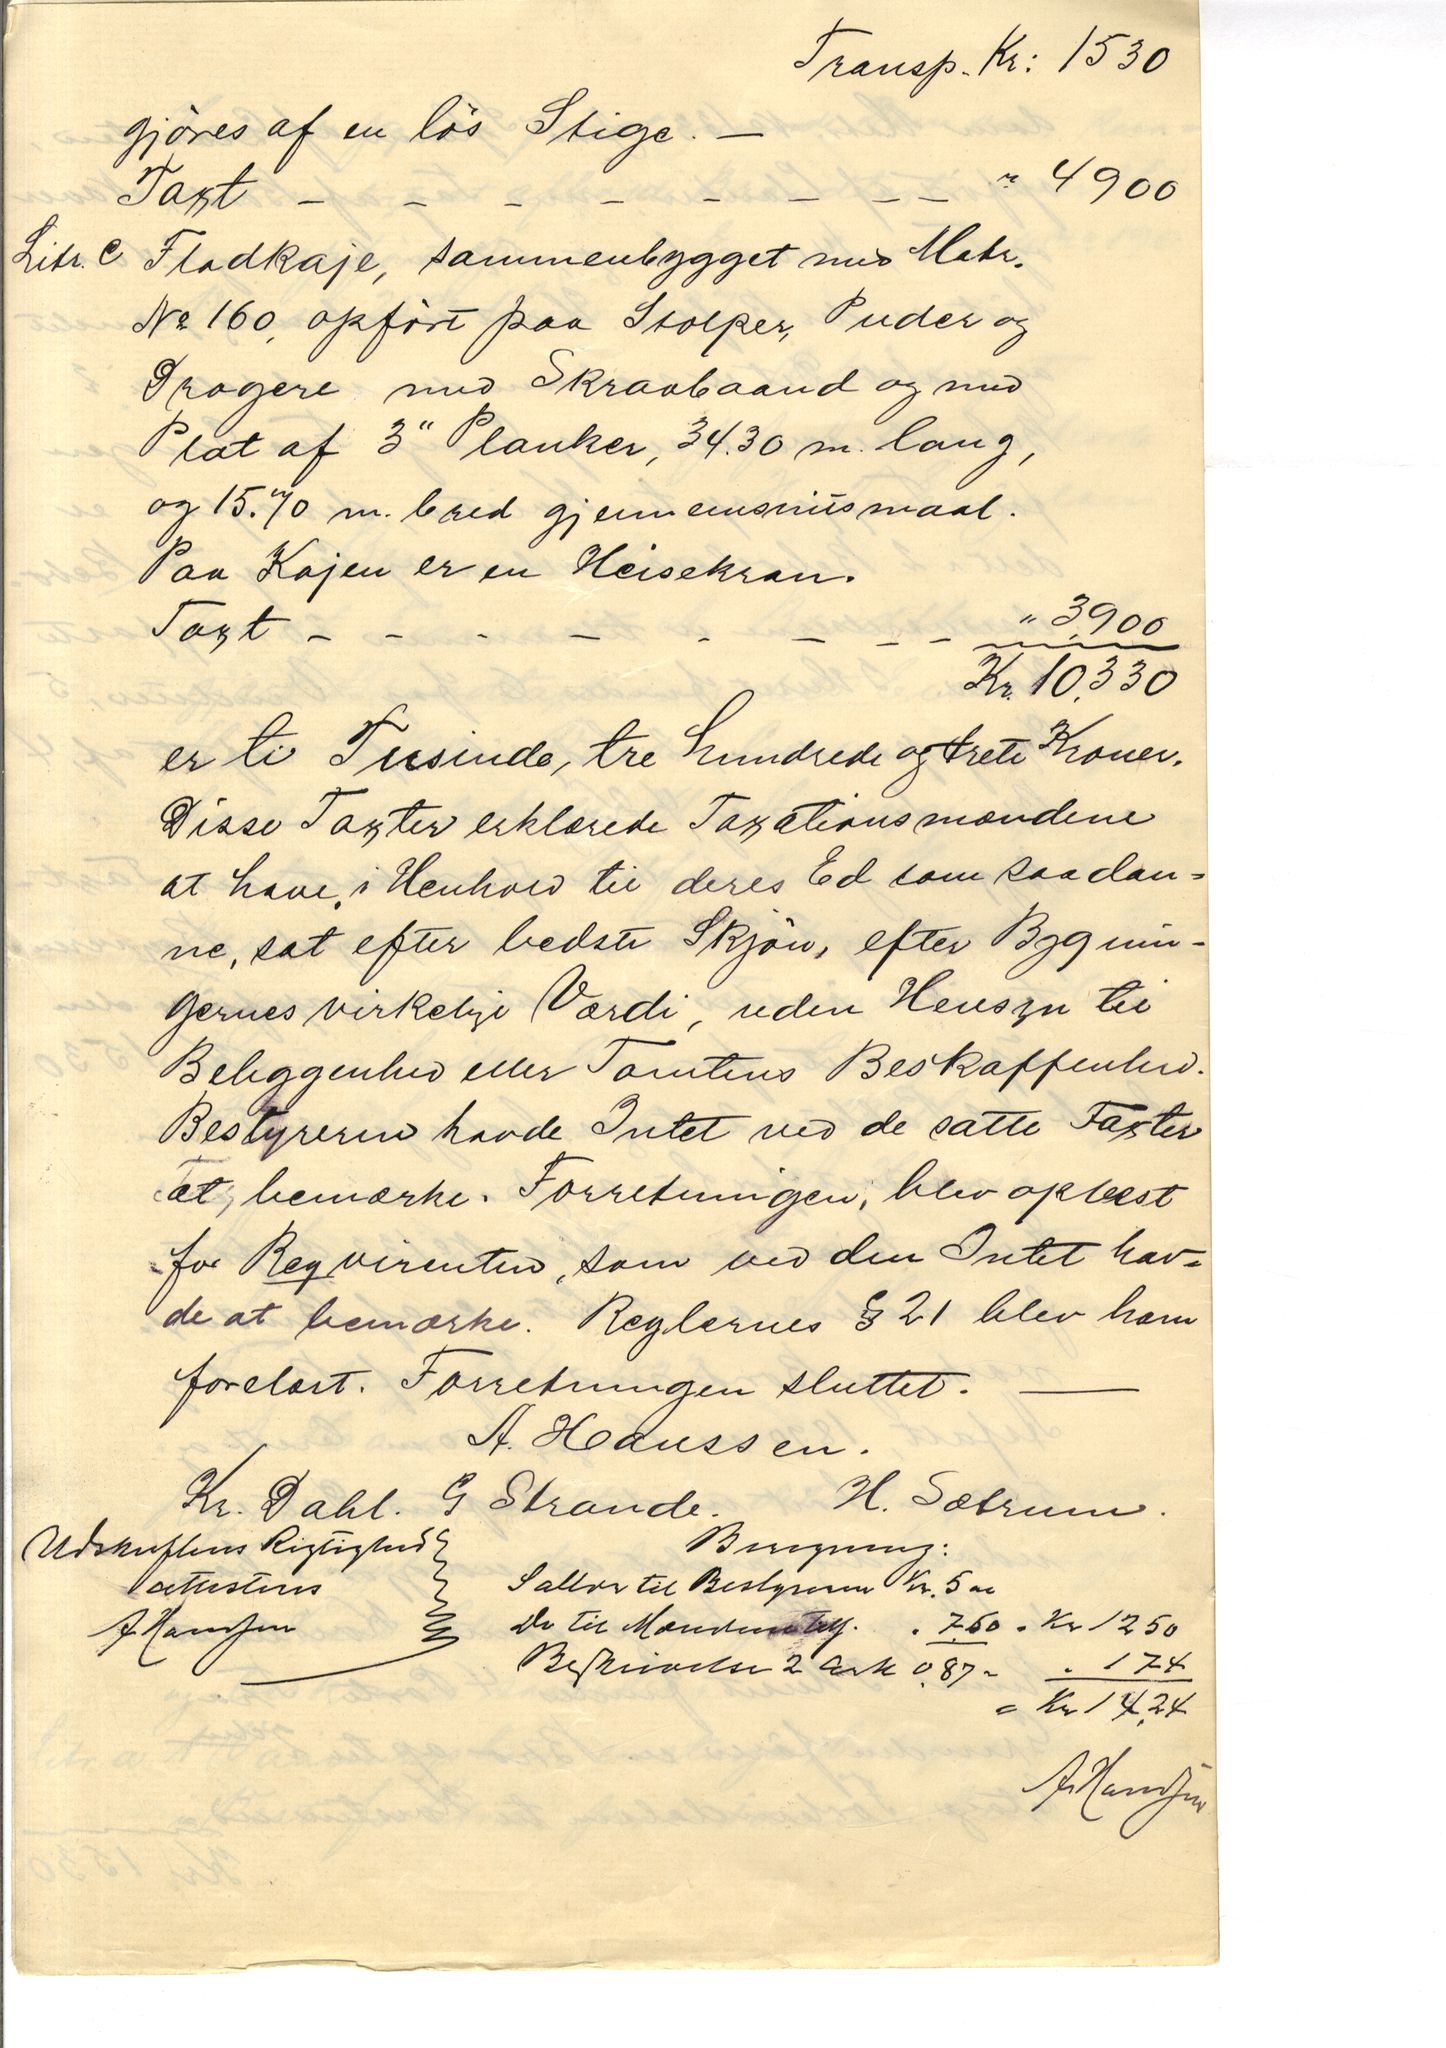 Transp. Kr: 1530
gjöres af en lös Stige. —
Taxt — — — — — — — — " 4900
Litr. C Flodkaje, sammenbygget med Matr.
No 160, opfört paa Stolper, Puder og
Dragere med Skraabaand og med
Plat af 3" Planker, 34.30 m. lang,
og 15.70 m. bred gjennemsnitsmaal.
Paa Kajen er en Heisekran.
Taxt — — — — — — — " 3,900
Kr. 10,330
er ti Tusinde, tre hundrede og treti Kroner.
Disse Taxter erklærede Taxationsmændene
at have, i Henhold til deres Ed som saadan-
ne, sat efter bedste Skjön, efter Bygnin-
gernes virkelige Værdi, uden Hensyn til
Beliggenhed eller Tomtens Beskaffenhed.
Bestyreren havde Intet ved de satte Taxter
at bemærke. Forretningen, blev oplæst
for Reqvirenten, som ved den Intet hav-
de at bemærke. Reglernes § 21 blev ham
forelæst. Forretningen sluttet. —
A. Hanssen.
Kr. Dahl. G Strande. H. Sætrum.
Udskriftens Rigtighed
attesteres
A Hanssen
Beregning:
Sallær til Bestyreren Kr. 5 00
Do til Mændene . 7.50 = Kr 12 50
Beskrivelse 2 Ark 0,87 = " 1 74
= Kr 14,24
A. Hanssen